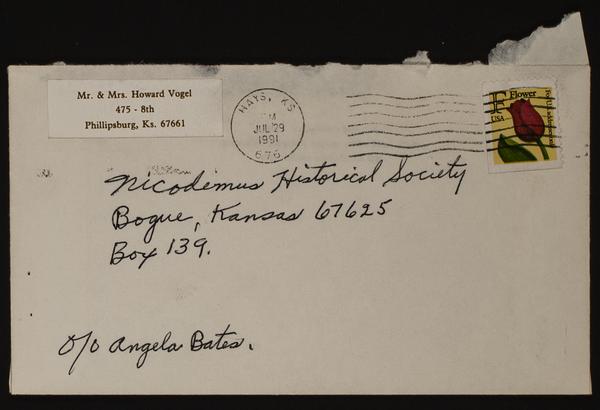 Mr. & Mrs. Howard Vogel
475 - 8th
Phillipsburg, Ks. 67661
HAYS, KS
PM
JUL 29
1991
676
F Flower
USA
For U.S. addresses only
Nicodemus Historical Society
Bogue, Kansas 67625
Box 139.
c/o Angela Bates.